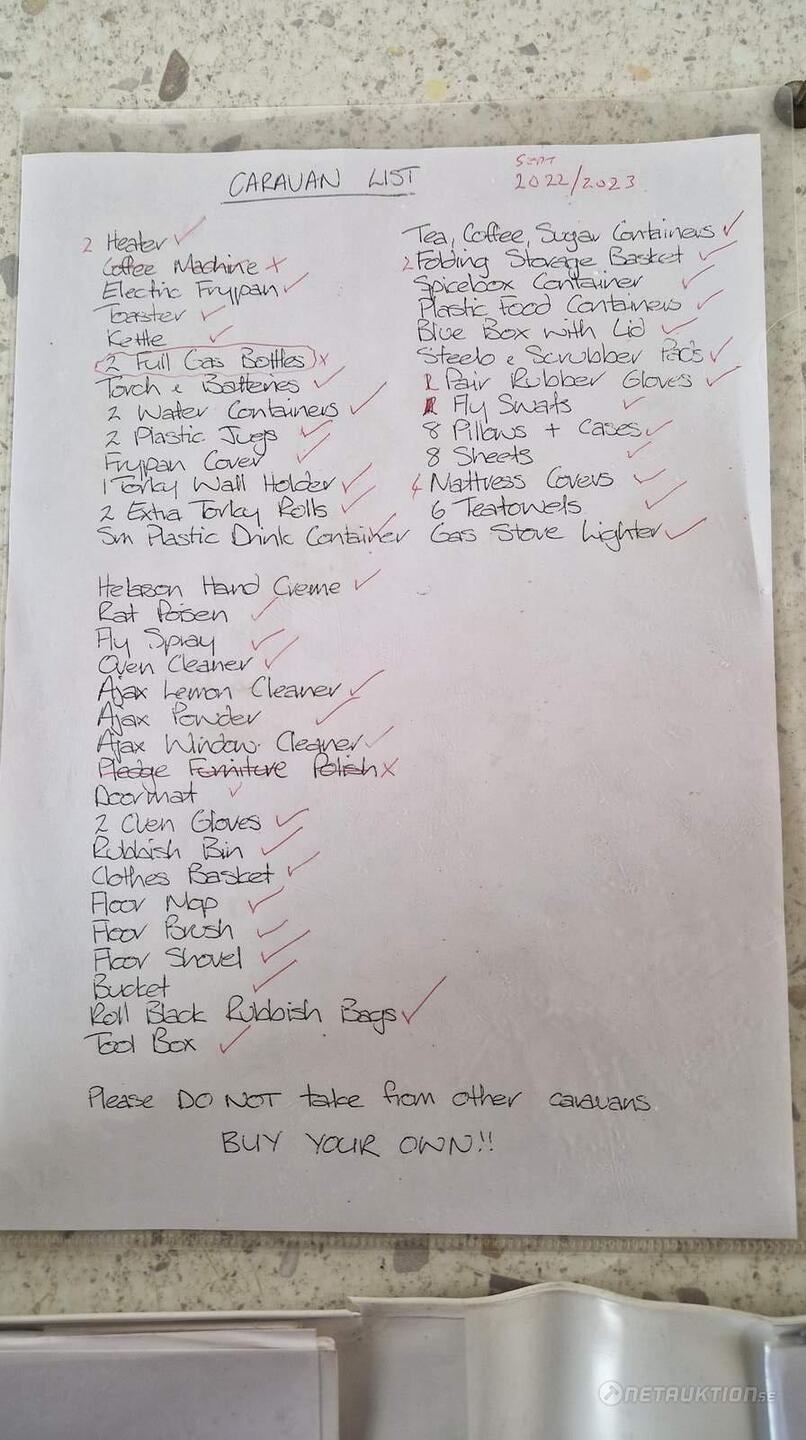 CARAVAN LIST
SEPT
2022/2023
2 Heater ✓
Coffee Machine x
Electric Frypan ✓
Toaster ✓
Kettle ✓
2 Full Gas Bottles x
Torch & Batteries ✓
2 Water Containers ✓
2 Plastic Jugs ✓
Frypan Cover ✓
1 Torky Wall Holder ✓
2 Extra Torky Rolls ✓
Sm Plastic Drink Container ✓
Tea, Coffee, Sugar Containers ✓
2 Folding Storage Basket ✓
Spicebox Container ✓
Plastic Food Containers ✓
Blue Box with Lid ✓
Steelo & Scrubber Pac's ✓
1 Pair Rubber Gloves ✓
Fly Swats ✓
8 Pillows + Cases ✓
8 Sheets ✓
4 Mattress Covers ✓
6 Teatowels ✓
Gas Stove Lighter ✓
Helason Hand Creme ✓
Rat Poisen ✓
Fly Spray ✓
Oven Cleaner ✓
Ajax Lemon Cleaner ✓
Ajax Powder ✓
Ajax Window Cleaner ✓
Pledge Furniture Polish x
Doormat ✓
2 Oven Gloves ✓
Rubbish Bin ✓
Clothes Basket ✓
Floor Mop ✓
Floor Brush ✓
Floor Shovel ✓
Bucket ✓
Roll Black Rubbish Bags ✓
Tool Box ✓
Please DO NOT take from other caravans
BUY YOUR OWN!!
NETAUKTION.SE